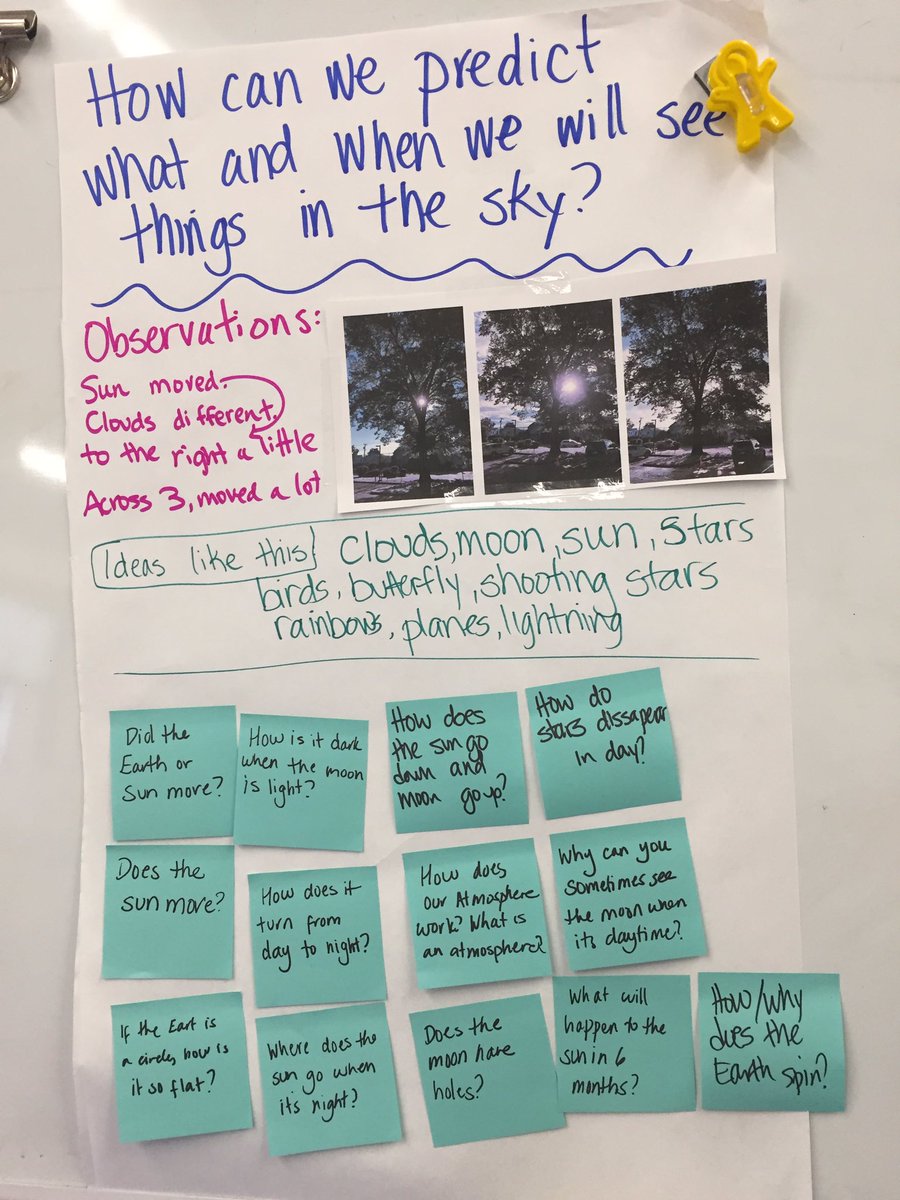 How can we predict
what and when we will see
things in the sky?
Observations:
Sun moved.
Clouds different.
to the right a little
Across 3, moved a lot
Ideas like this
clouds, moon, sun, stars
birds, butterfly, shooting stars
rainbows, planes, lightning
Did the
Earth or
Sun move?
How is it dark
when the moon
is light?
How does
the sun go
down and
moon go up?
How do
stars dissapear
in day?
Does the
sun move?
How does it
turn from
day to night?
How does
our Atmosphere
work? What is
an atmosphere?
Why can you
sometimes see
the moon when
its daytime?
If the Eart is
a circle, how is
it so flat?
Where does the
sun go when
its night?
Does the
moon have
holes?
What will
happen to the
sun in 6
months?
How/Why
does the
Earth spin?